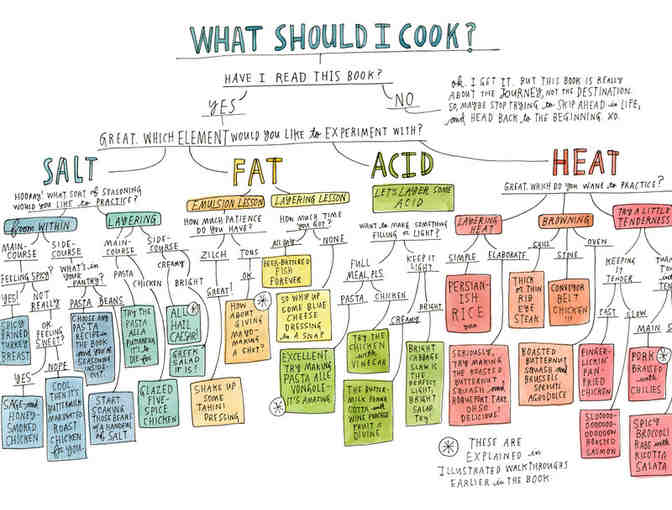 WHAT SHOULD I COOK?
HAVE I READ THIS BOOK?
YES
NO
OK. I GET IT. BUT THIS BOOK IS REALLY
ABOUT THE JOURNEY, NOT THE DESTINATION.
SO, MAYBE STOP TRYING to SKIP AHEAD in LIFE,
and HEAD BACK to the BEGINNING. XO.
GREAT. WHICH ELEMENT WOULD YOU LIKE to EXPERIMENT WITH?
SALT
HOORAY! WHAT SORT of SEASONING
WOULD YOU LIKE to PRACTICE?
from WITHIN
MAIN-
COURSE
SIDE-
COURSE
FEELING SPICY?
YES!
NOT
REALLY
SPICY
BRINED
TURKEY
BREAST
OR
FEELING
SWEET?
YES
NOPE
SAGE-and
HONEY-
SMOKED
CHICKEN
COOL,
THEN it's
BUTTERMILK
MARINATED
ROAST
CHICKEN
for YOU.
WHAT'S in
YOUR
PANTRY?
PASTA
BEANS
CHOOSE ANY
PASTA
RECIPE in
the BOOK
and
SEASONING
INSIDE
OUT.
START
SOAKING
THOSE BEANS
in A HANDFUL
of SALT
LAYERING
MAIN-
COURSE
SIDE-
COURSE
PASTA
CHICKEN
TRY THE
PASTA ALLA
PUTTANESCA
IT'S to
DIE for
GLAZED
FIVE-
SPICE
CHICKEN
CREAMY
BRIGHT
ALL
HAIL
CAESAR!
GREEK
SALAD
IT IS!
FAT
EMULSION LESSON
HOW MUCH PATIENCE
DO YOU HAVE?
ZILCH
TONS
GREAT!
SHAKE UP
SOME
TAHINI
DRESSING
OK
HOW
ABOUT
GIVING
MAYO
MAKING
A SHOT?
LAYERING LESSON
HOW MUCH TIME
YOU GOT?
ALL DAY
NONE
BEER-BATTERED
FISH
FOREVER
SO WHIP UP
SOME BLUE
CHEESE
DRESSING
in A SNAP!
ACID
LET'S LAYER SOME
ACID
WANT to MAKE SOMETHING
FILLING OR LIGHT?
FULL
MEAL, PLS.
KEEP IT
LIGHT.
PASTA
CHICKEN
EXCELLENT
TRY MAKING
PASTA ALLE
VONGOLE—
IT'S AMAZING
TRY THE
CHICKEN
with
VINEGAR
CREAMY
BRIGHT
THE BUTTER-
MILK PANNA
COTTA with
WINE POACHED
FRUIT is
DIVINE
BRIGHT
CABBAGE
SLAW IS THE
PERFECT
BRIGHT
SALAD
TRY!
HEAT
GREAT. WHICH DO YOU WANT to PRACTICE?
LAYERING
HEAT
SIMPLE
ELABORATE
PERSIAN-
ISH
RICE
SERIOUSLY,
TRY MAKING
THE ROASTED
BUTTERNUT
SQUASH and
TAKE
OH SO
DELICIOUS!
BROWNING
STOVE
OVEN
THICK or
THIN
RIB
EYE
STEAK
CONVEYOR
BELT
CHICKEN!!!
ROASTED
BUTTERNUT
SQUASH and
BRUSSELS
SPROUTS
AGRODOLCE
TRY A LITTLE
TENDERNESS
KEEPING
IT
TENDER
FAST
SLOW
FINGER-
LICKIN'
PAN-
FRIED
CHICKEN
ROASTED
SALMON
MAIN
PORK
BRAISED
WITH
CHILIES
SPICY
BROCCOLI
RABE WITH
RICOTTA
SALATA
THESE ARE
EXPLAINED in
ILLUSTRATED WALKTHROUGHS
EARLIER in the BOOK